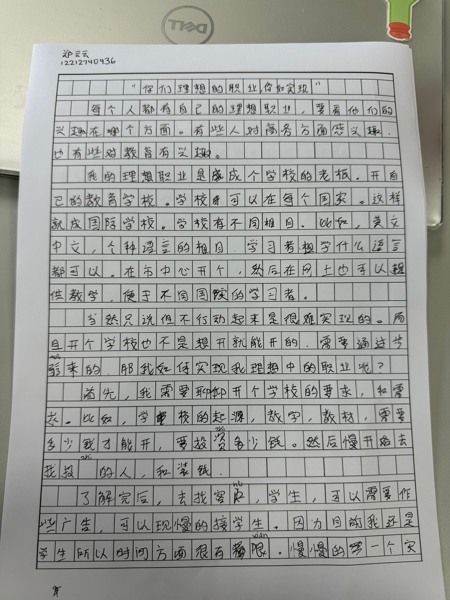 DELL
12212740436
"你们理想的职业,你如实现"
每个人都有自己的理想职业,要看他们的
兴趣在哪个方面。有些人对商务方面感兴趣,
也有些对教育有兴趣。
我的理想职业是成个学校的老板。开自
己的教育学校。学校可以在每个国家。这样
就成国际学校。学校有不同推目。比如,英文
中文,个种语言的推目。学习者想学什么语言
都可以。在市中心开个,然后在网上也可以提
供教学,便于不同国家的学习者。
当然只说但不行动起来是很难实现的。而
且开个学校也不是想开就能开的。需要通过步
来的。那我如何实现我理想中的职业呢?
首先,我需要开个学校的要求,和需
求。比如,学校的起源,教学,教材,需要
多少钱才能开,要投资多少钱。然后慢开始去
我投的人,和装钱.
了解完后,去找客,学生,可以需要作
些广告,可以现慢的接学生。因为目前我还是
学生所以时间方面很有限。慢慢的一个实